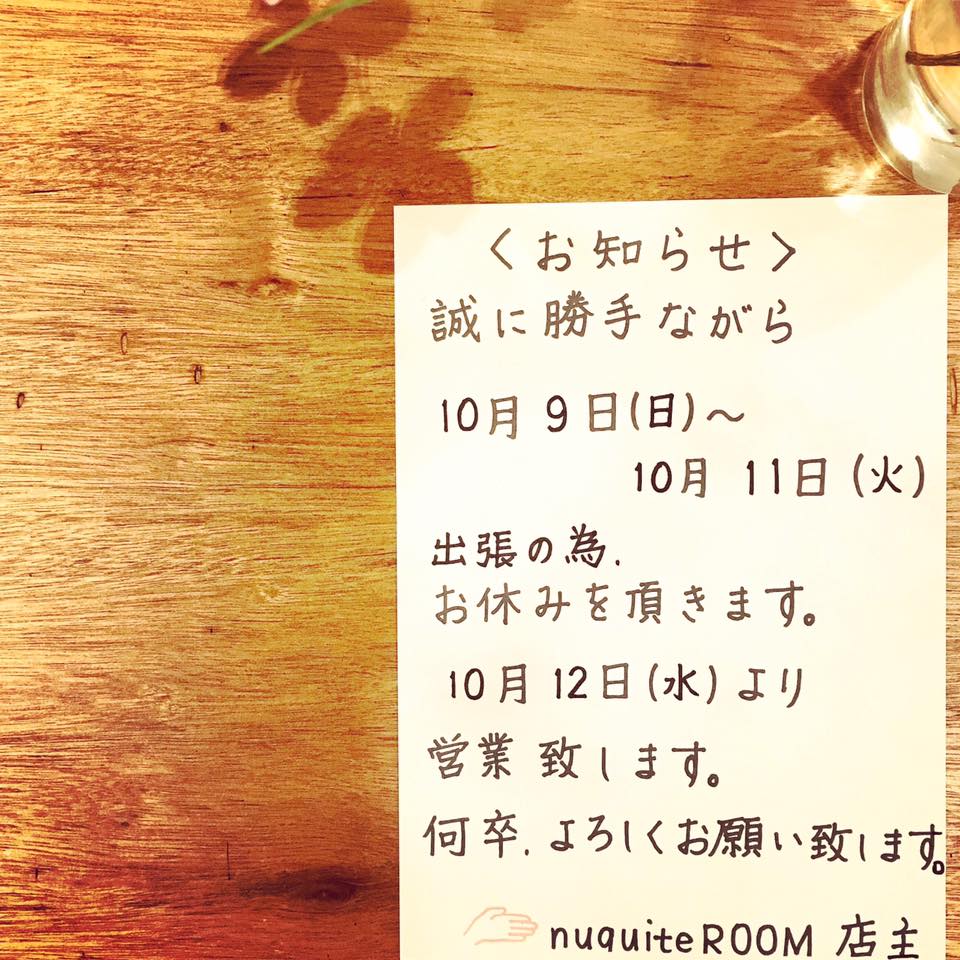 〈お知らせ〉
誠に勝手ながら
10月9日(日)～
10月11日(火)
出張の為.
お休みを頂きます。
10月12日(水)より
営業致します。
何卒.よろしくお願い致します。
nuquiteROOM 店主